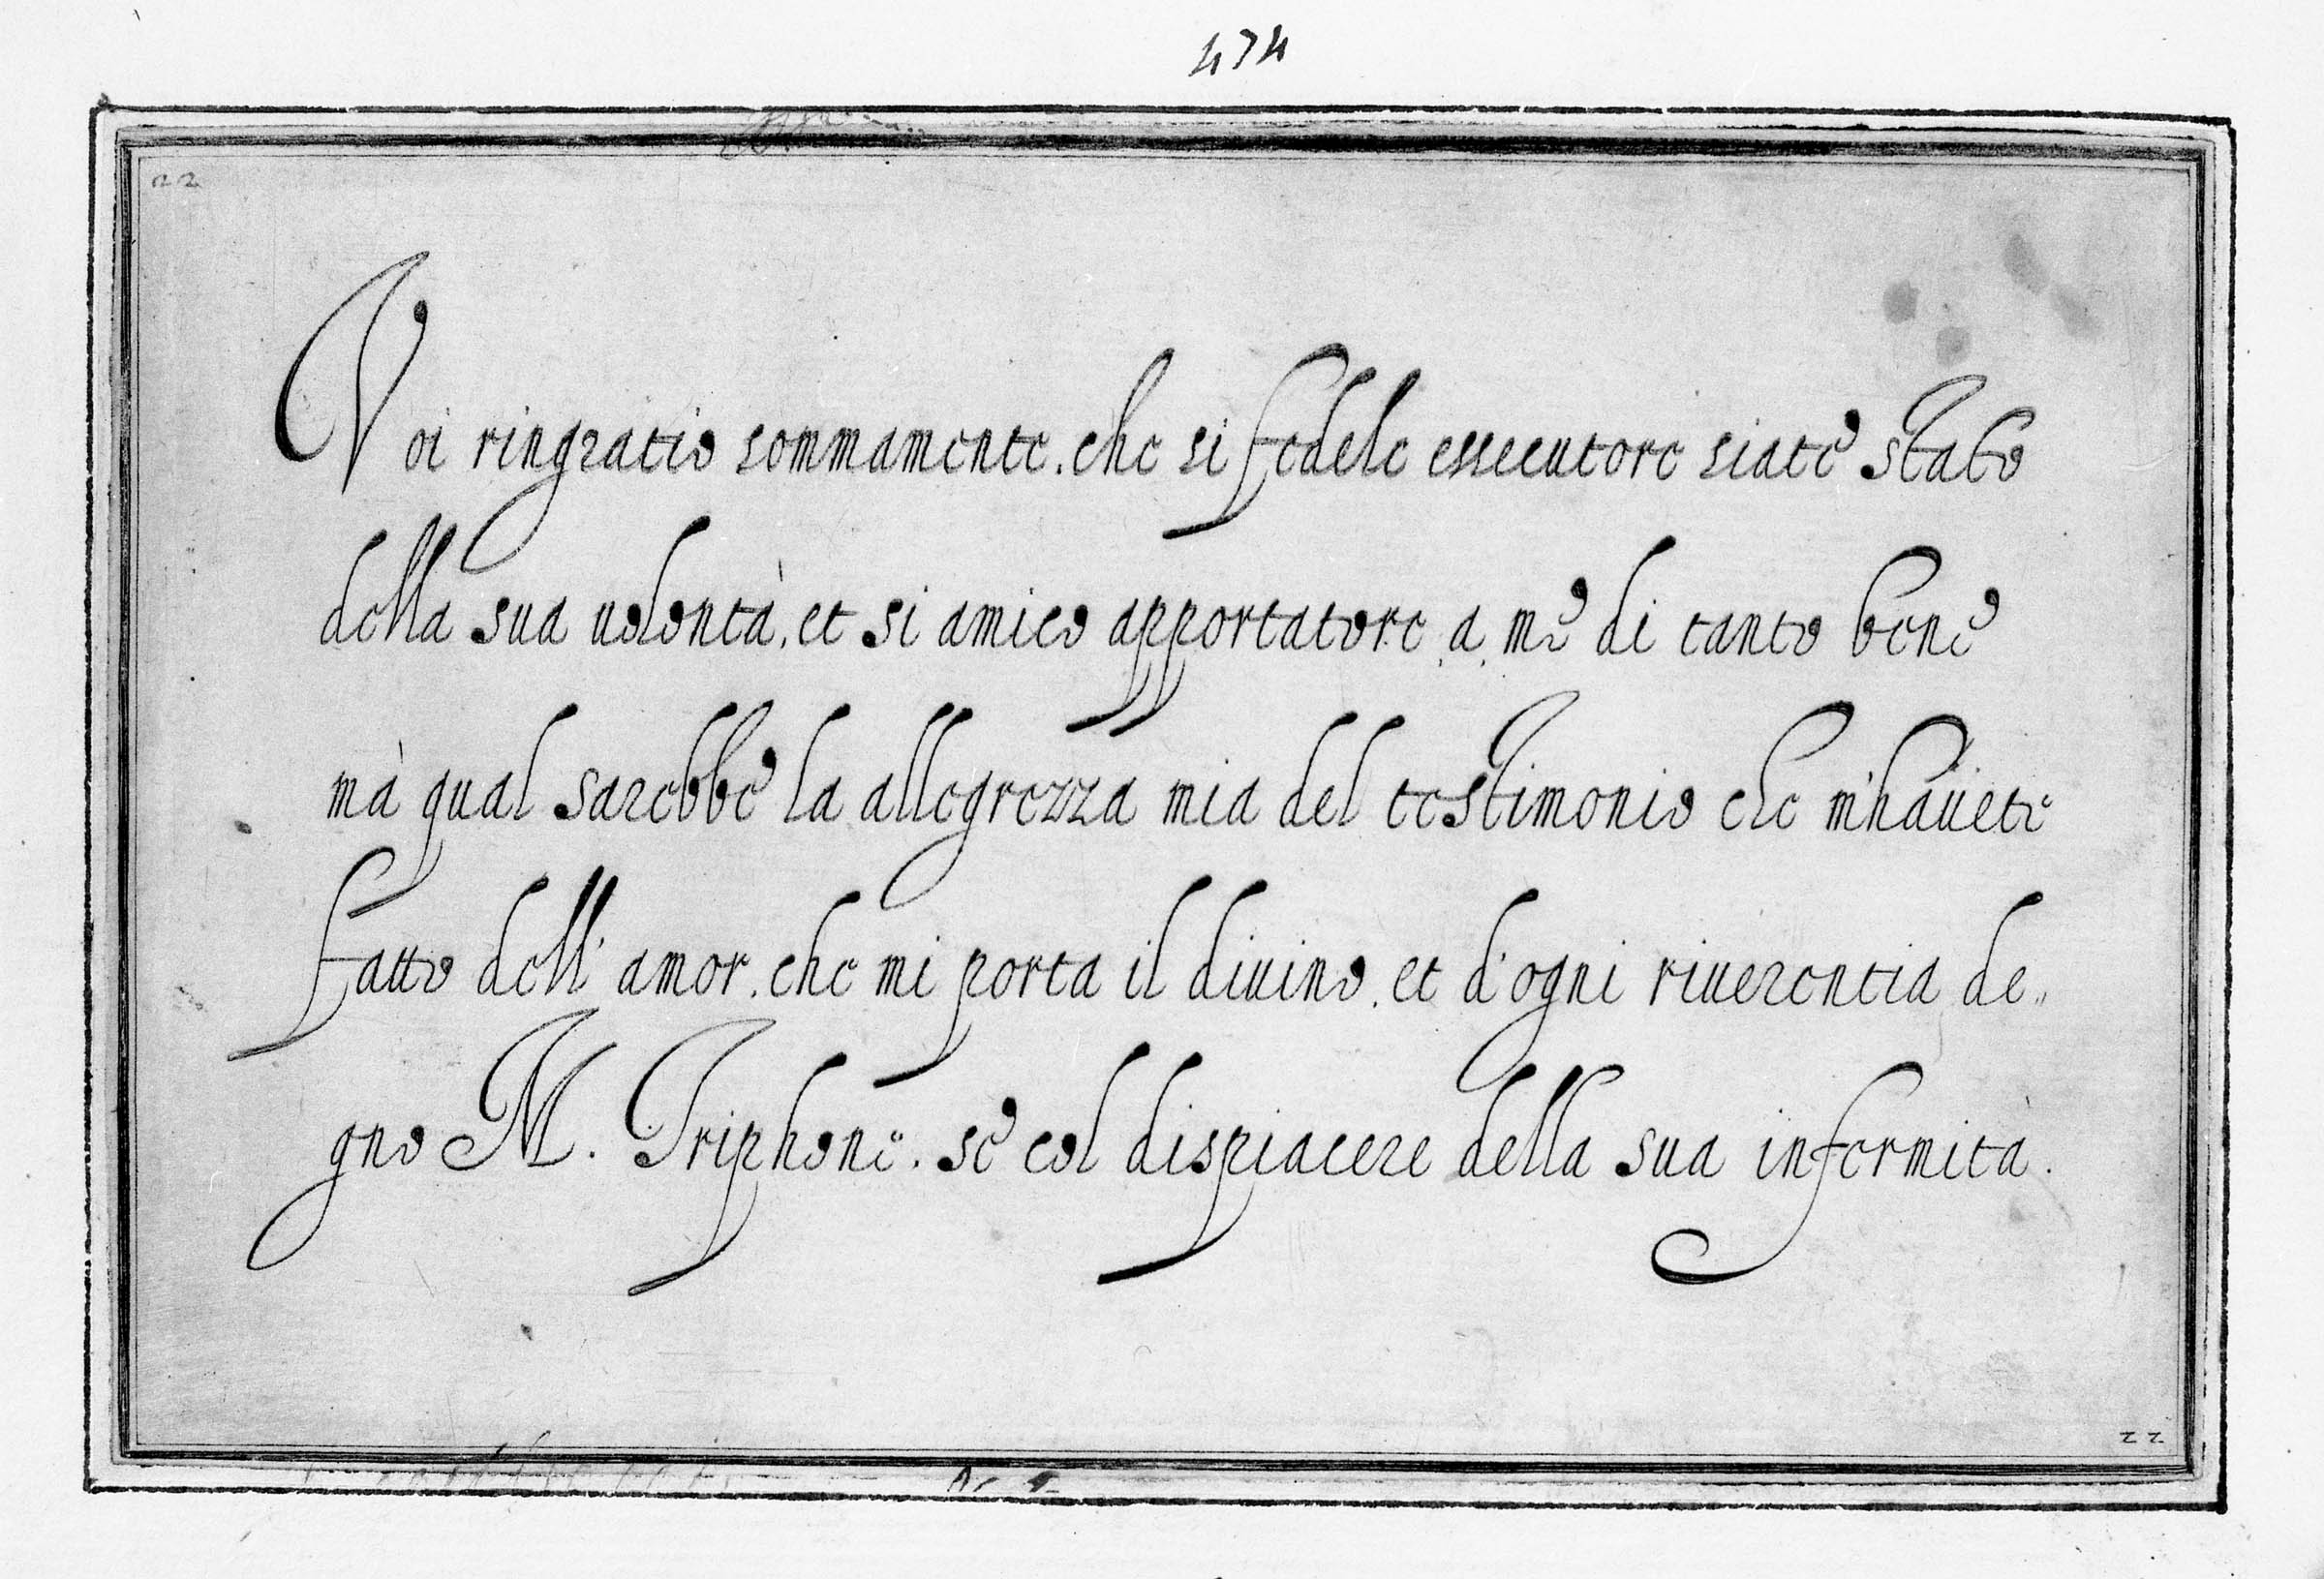 474
22
Voi ringratio sommamente. che si fedele essecutore siate stato
della sua uolontà, et si amico apportatore a me di tanto bene
mà qual sarebbe la allegrezza mia del testimonio che m'hauete
fatto dell' amor. che mi porta il diuino. et d'ogni riuerentia de„
gno M. Triphone. se col dispiacere della sua infermità.
22